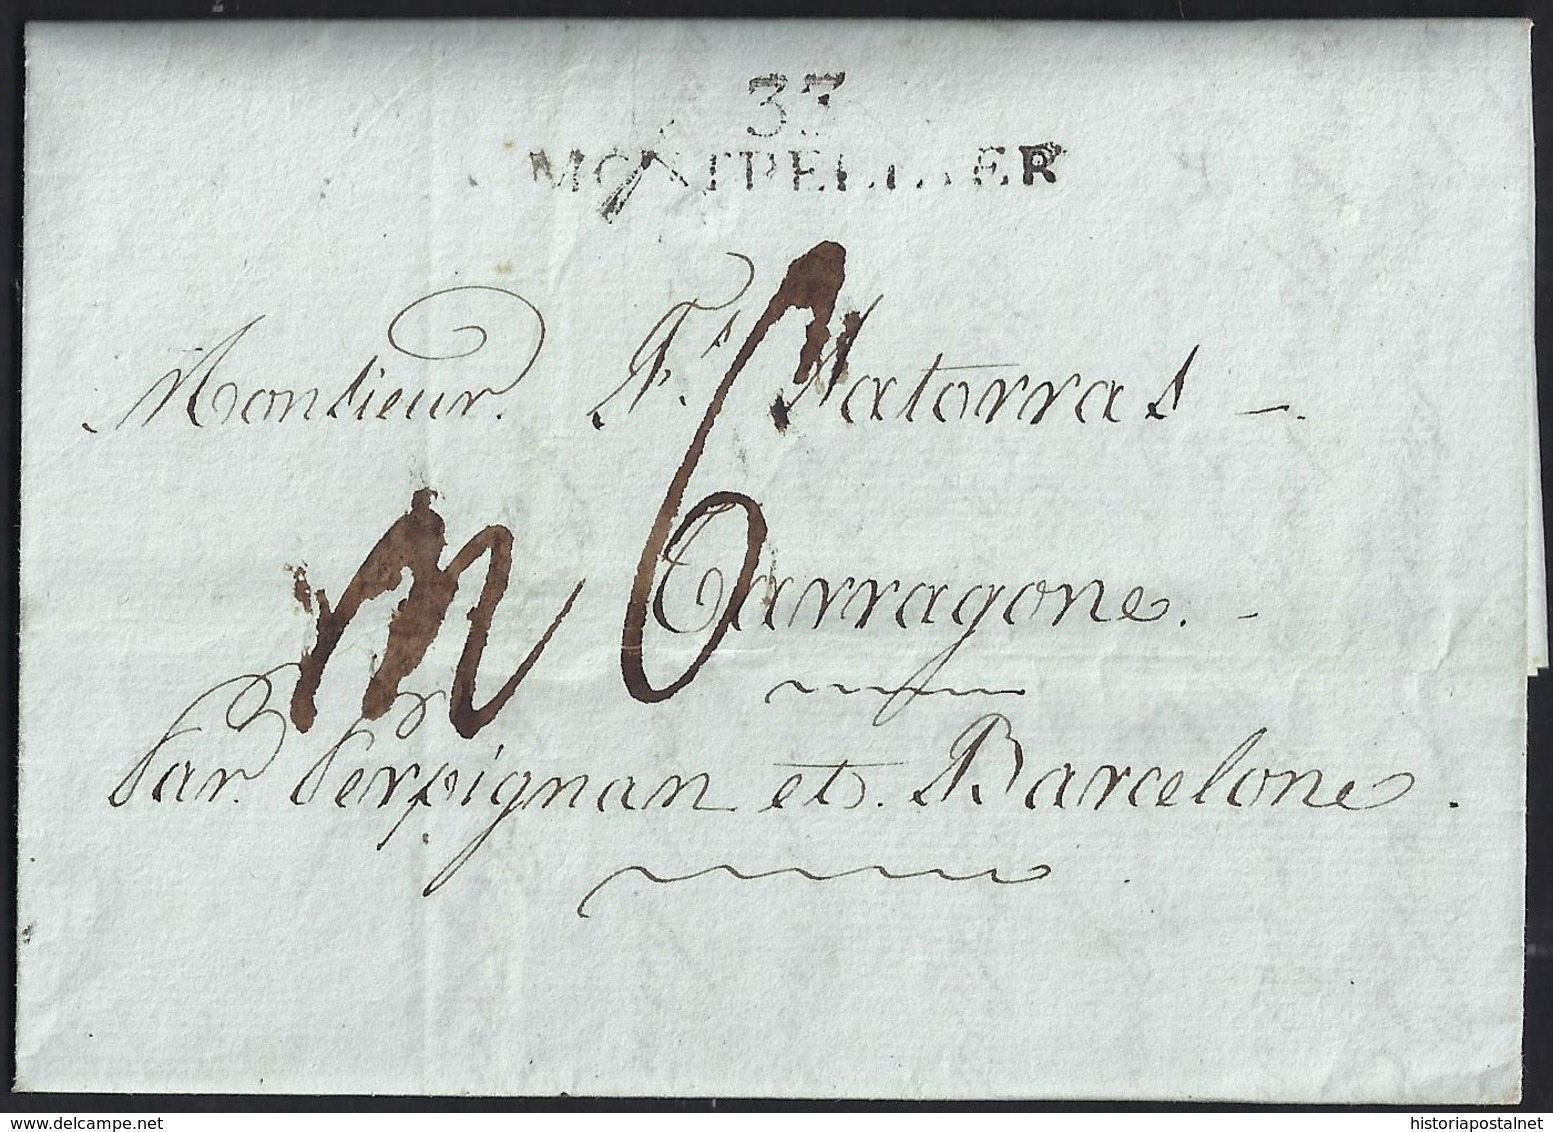 33
MONTPELLIER
Monsieur. Fs. Matorras
m 6
Tarragone.
Par. Perpignan et. Barcelone.
delcampe.net
historiapostalnet